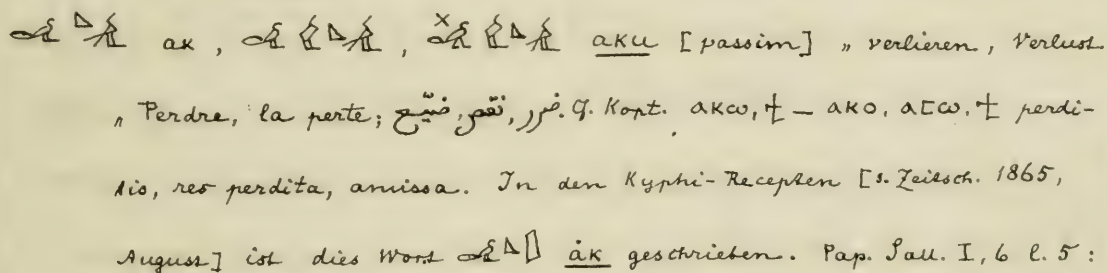 ак, , aku [passim] „ verlieren, Verlust
„ Perdre, la perte; ضرر, نقص, ضيّع. Cf. Kopt. ⲁⲕⲱ, ϯ — ⲁⲕⲟ, ⲁϭⲱ, ϯ perdi-
tio, res perdita, amissa. In den Kyphi-Recepten [s. Zeitsch. 1865,
August] ist dies Wort ȧk geschrieben. Pap. Sall. I, 6 l. 5 :